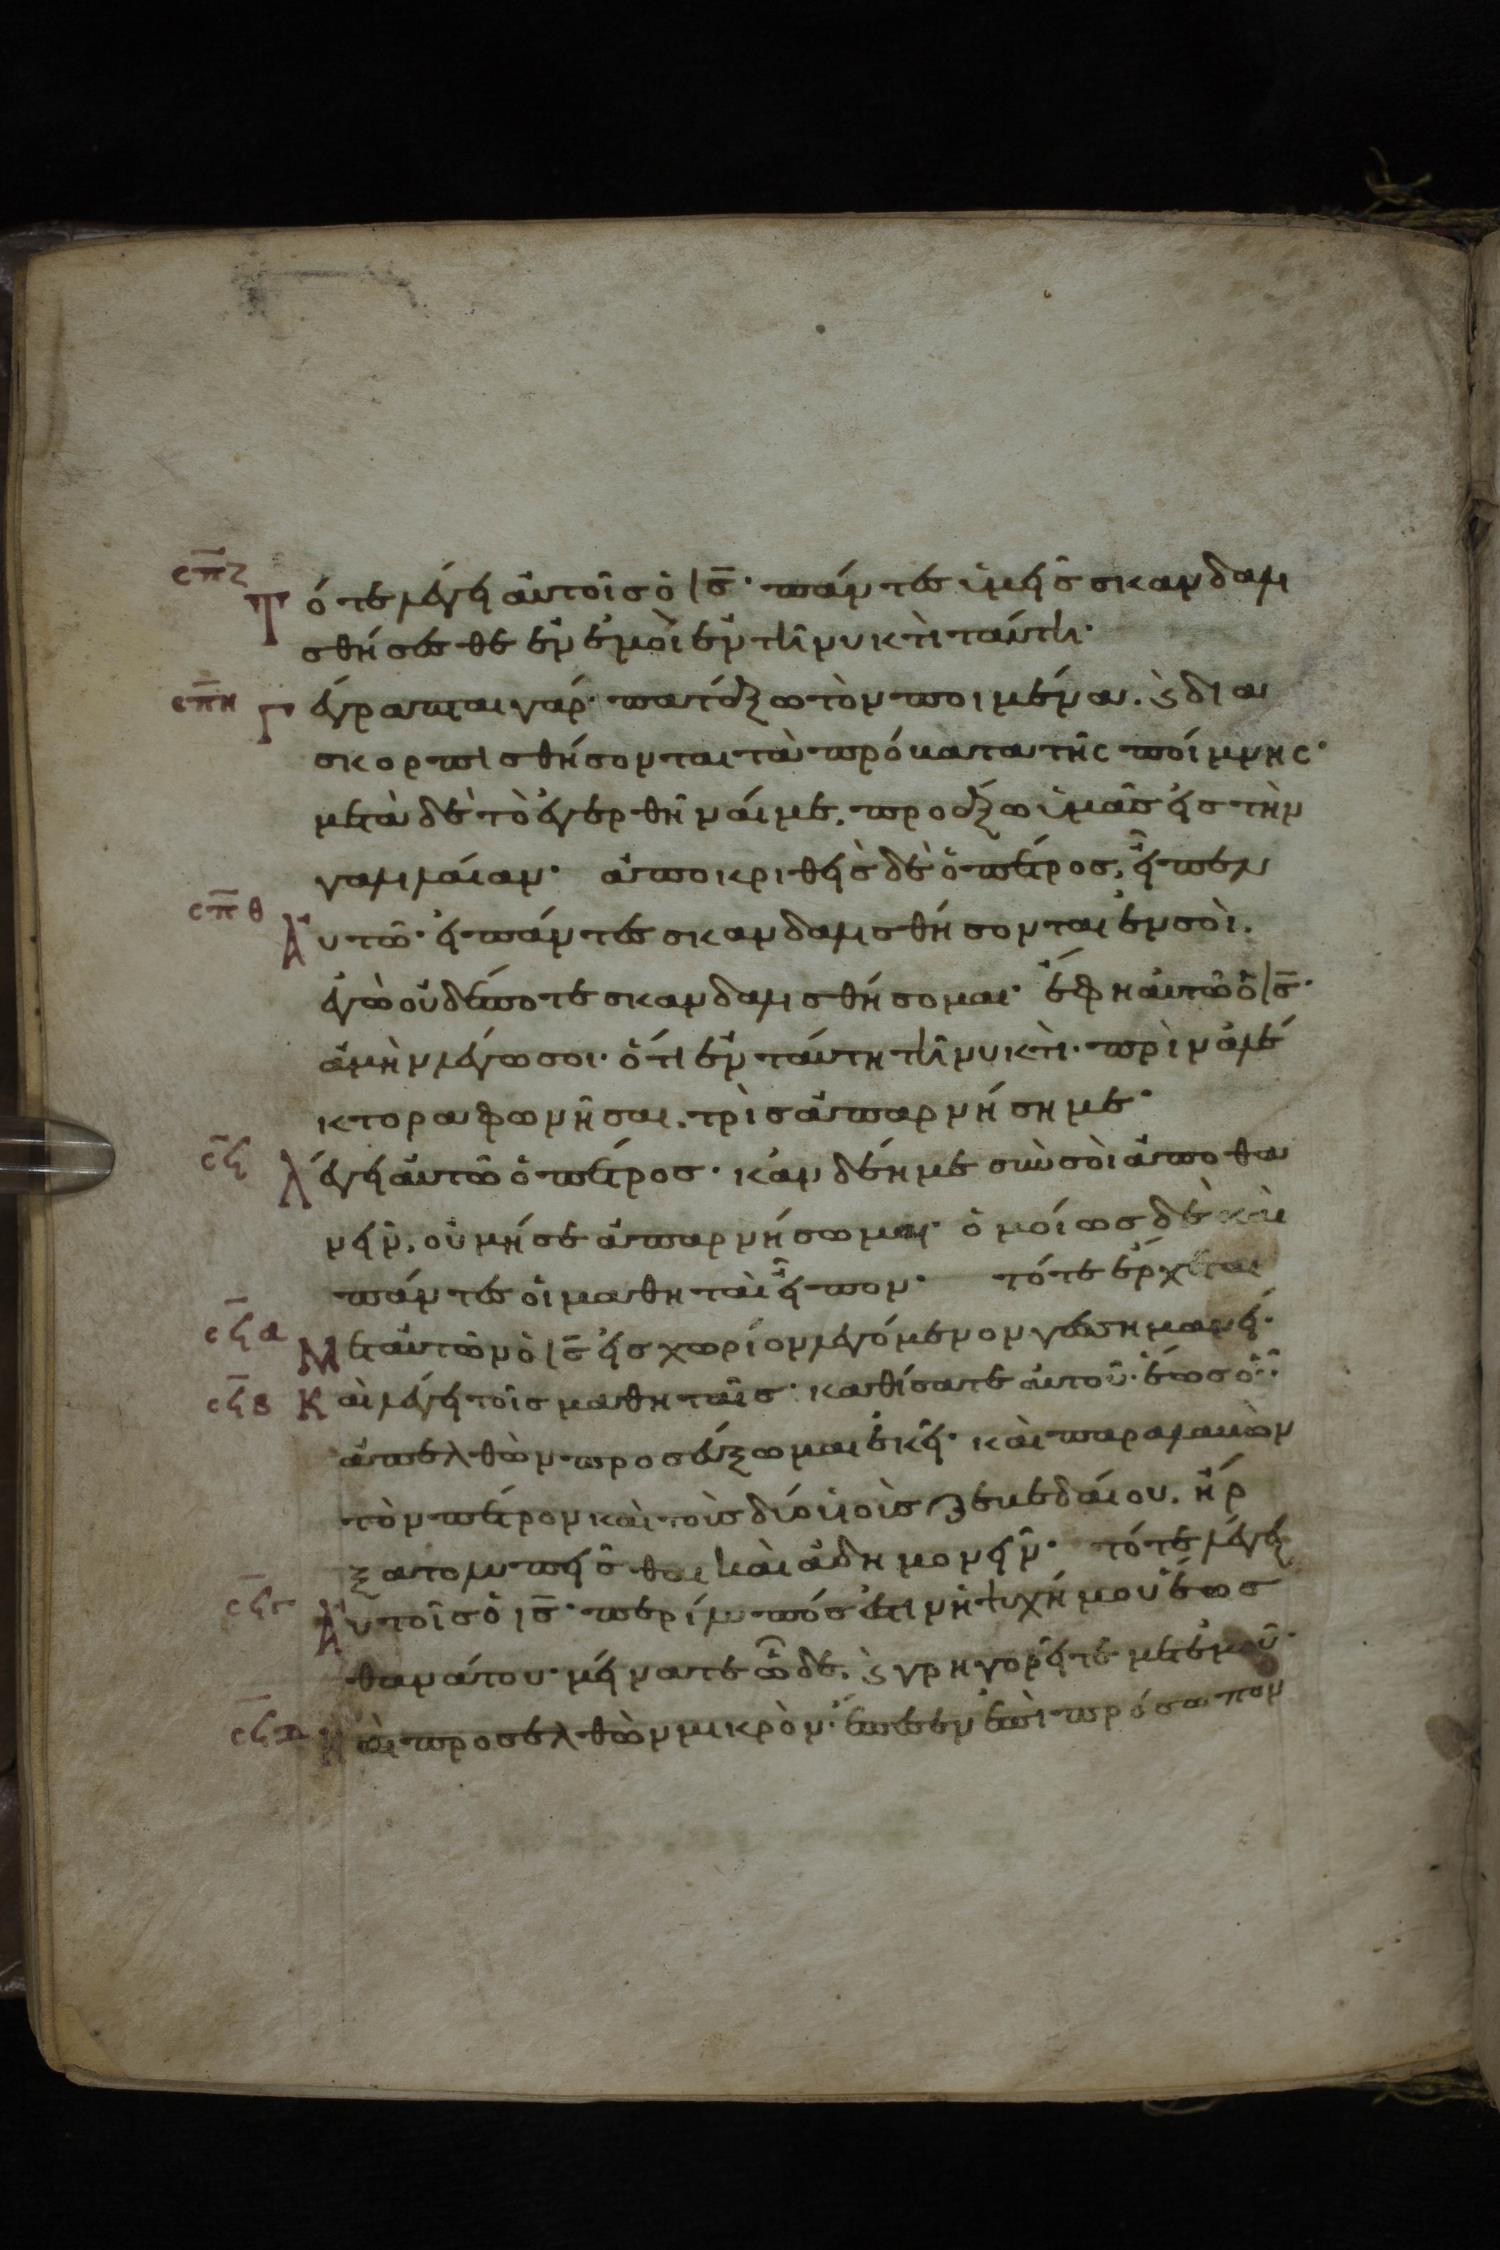 σπζ Τότε λέγει αὐτοῖς ὁ ις̅· πάντες ὑμεῖς σκανδαλι
σθήσεσθε ἐν ἐμοὶ ἐν τῆ νυκτὶ ταύτη·
σπη Γέγραπται γάρ· πατάξω τὸν ποιμένα. ϗ δια
σκορπισθήσονται τὰ πρόβατα τῆς ποίμνης·
μετὰ δὲ τὸ ἐγερθῆναί με. προάξω ὑμᾶς εἰς τὴν
γαλιλαίαν· ἀποκριθεὶς δὲ ὁ πέτρος, εἶπεν
σπθ Αὐτῶ· εἰ πάντες σκανδαλισθήσονται ἐν σοὶ.
ἐγὼ οὐδέποτε σκανδαλισθήσομαι· ἔφη αὐτῶ ὁ ις̅·
ἀμὴν λέγω σοι· ὅτι ἐν ταύτη τῆ νυκτὶ· πρὶν ἀλέ
κτορα φωνῆσαι. τρὶς ἀπαρνήση με·
σϟ Λέγει αὐτῶ ὁ πέτρος· κἂν δέη με σὺν σοὶ ἀποθα
νεῖν, οὐ μή σε ἀπαρνήσωμαι· ὁμοίως δὲ καὶ
πάντες οἱ μαθηταὶ εἶπον· τότε ἔρχεται
σϟα Μετ αὐτῶν ὁ ις̅ εἰς χωρίον λεγόμενον γεθσημανεί·
σϟβ Καὶ λέγει τοῖς μαθηταῖς· καθίσατε αὐτοῦ· ἕως οὗ
ἀπελθὼν προσεύξωμαι ἐκεῖ· καὶ παραλαβὼν
τὸν πέτρον καὶ τοὺς δύο υἱοὺς ζεβεδαίου. ἤρ
ξατο λυπεῖσθαι καὶ ἀδημονεῖν· τότε λέγει
σϟγ Αὐτοῖς ὁ ις̅· περίλυπός ἐστιν ἡ ψυχή μου ἕως
θανάτου· μείνατε ὧδε. ϗ γρηγορεῖτε μετ ἐμοῦ·
σϟδ Καὶ προσελθὼν μικρὸν· ἔπεσεν ἐπὶ πρόσωπον